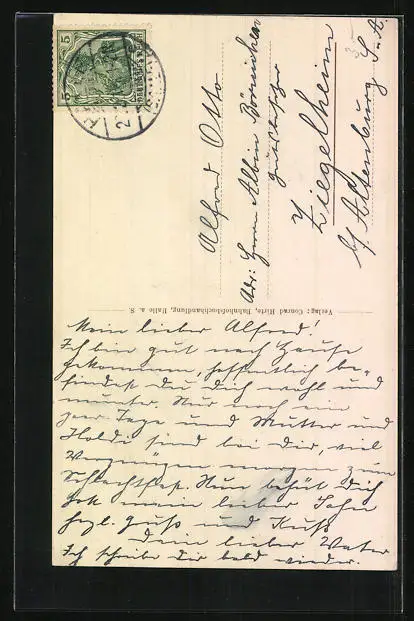 Mein lieber Alfred!
Ich bin gut nach Hause
gekommen, hoffentlich be-
findest Du Dich wohl und
munter. Nur noch ein
paar Tage und Mutter und
sind bei Dir, viel
Vergnügen zum
Schlachtfest. Nun behüt Dich
Gott mein lieber Sohn
herzl. Gruß und Kuß
Dein lieber Vater
Ich schreibe Dir bald wieder.
Verlag: Conrad Hirte, Bahnhofbuchhandlung, Halle a. S.
Alfred Otto
Adr: Herrn Albin
Gutsbesitzer
Ziegelheim
b/ Altenburg S.-A.
5 5